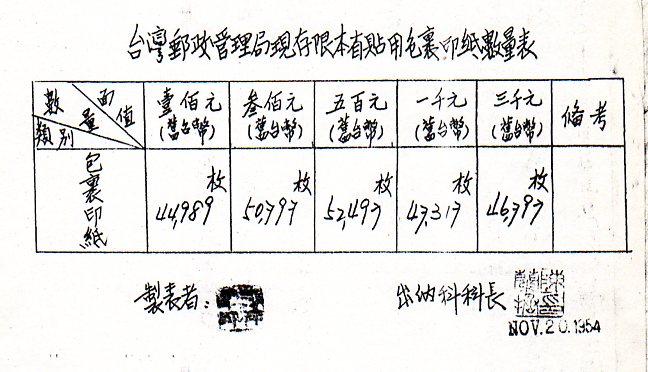 台灣郵政管理局現存限本省貼用包裹印紙數量表
面值 數量 類別 壹佰元 叁佰元 五百元 一千元 三千元 備考
(舊台幣) (舊台幣) (舊台幣) (舊台幣) (舊台幣)
包裹印紙 枚 枚 枚 枚 枚
44,989 50,797 52,497 47,317 46,797
製表者: 出納科科長
NOV.20.1954